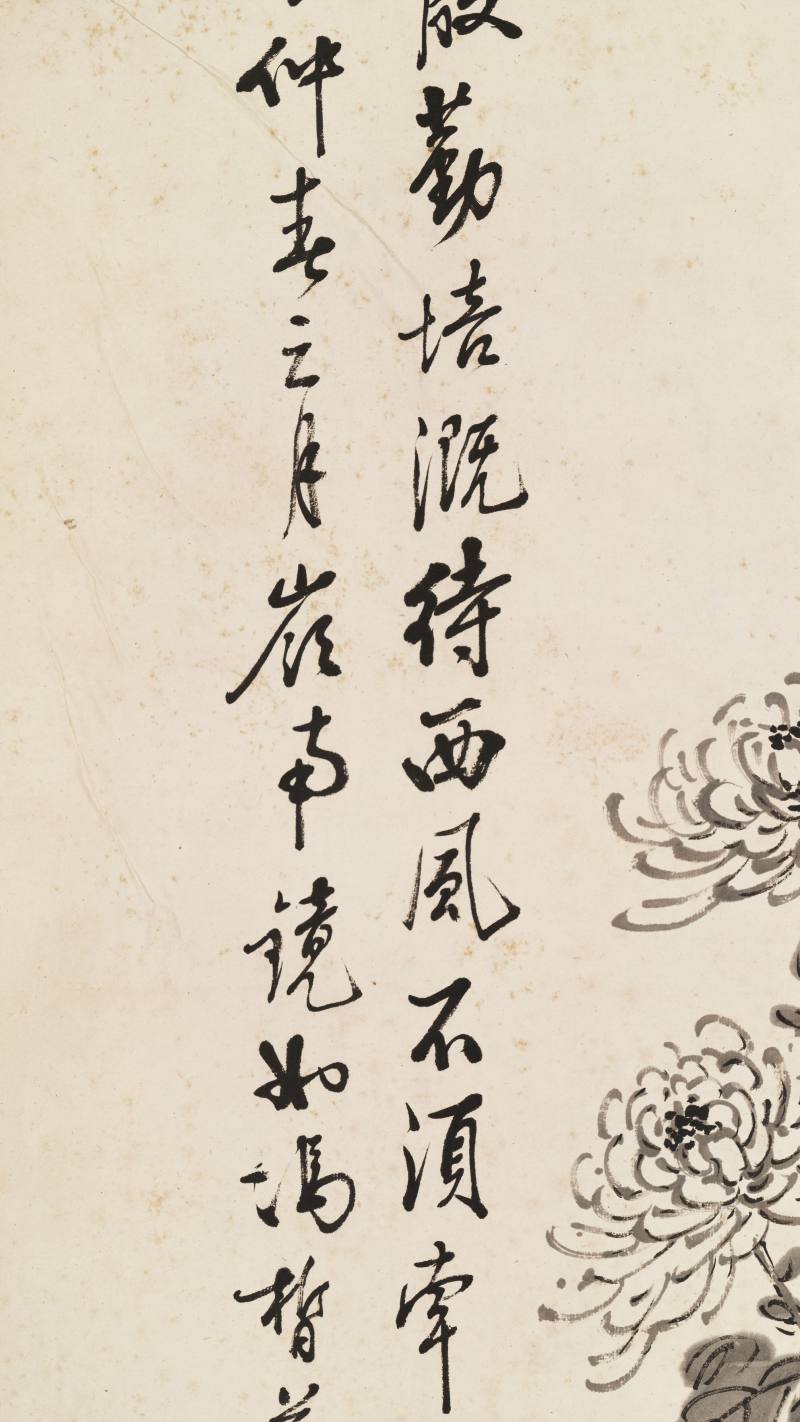 殷勤培溉待西風不須牽
仲春之月嶺南鏡如馮